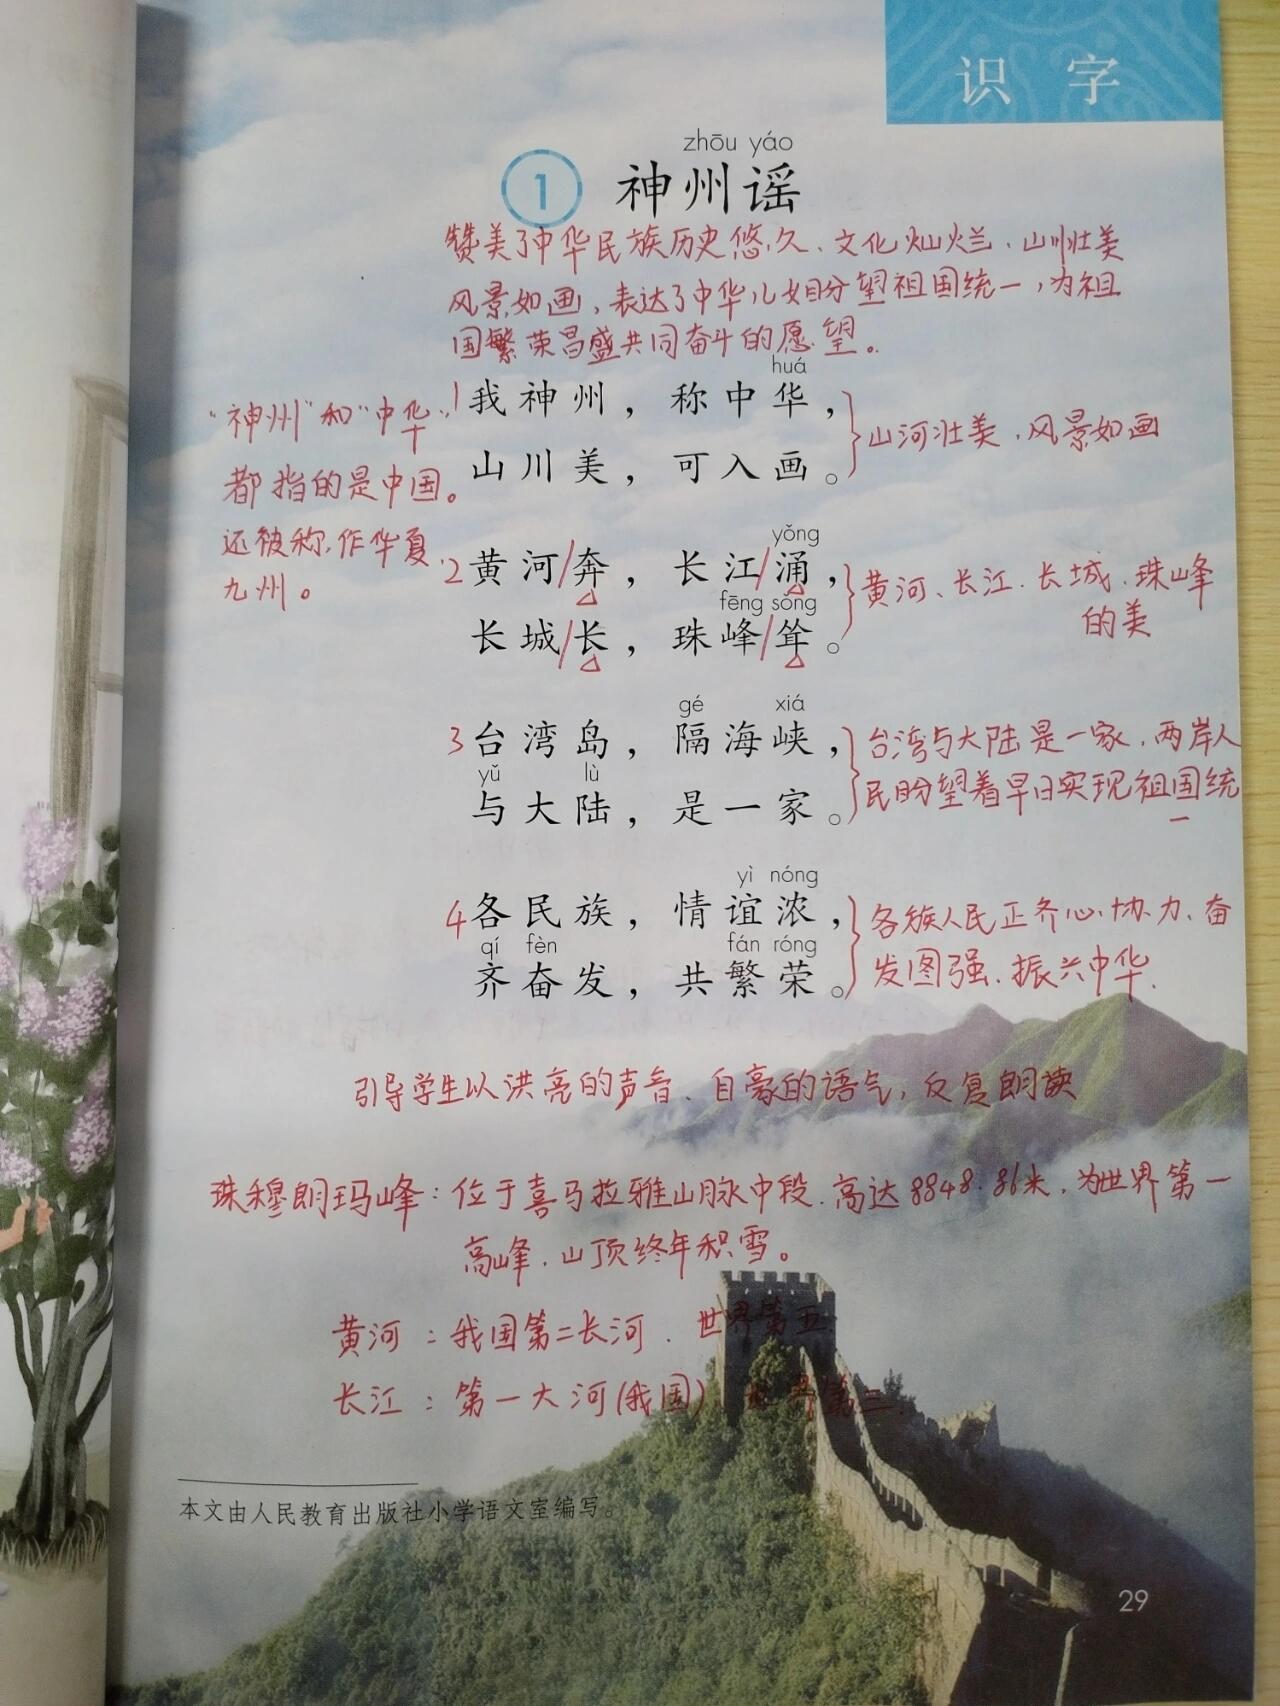 识字
zhōu yáo
1 神州谣
赞美了中华民族历史悠久、文化灿烂、山川壮美
风景如画，表达了中华儿女盼望祖国统一，为祖
国繁荣昌盛共同奋斗的愿望。
huá
1 我神州，称中华，
山川美，可入画。
山河壮美，风景如画
“神州”和“中华”
都指的是中国。
还被称作华夏、
九州。
yǒng
2 黄河/奔，长江/涌，
fēng sǒng
长城/长，珠峰/耸。
黄河、长江、长城、珠峰
的美
gé xiá
3 台湾岛，隔海峡，
yǔ lù
与大陆，是一家。
台湾与大陆是一家，两岸人
民盼望着早日实现祖国统
一
yì nóng
4 各民族，情谊浓，
qí fèn fán róng
齐奋发，共繁荣。
各族人民正齐心协力、奋
发图强、振兴中华.
引导学生以洪亮的声音、自豪的语气，反复朗读
珠穆朗玛峰：位于喜马拉雅山脉中段.高达8848.86米，为世界第一
高峰，山顶终年积雪。
黄河：我国第二长河．世界第五
长江：第一大河(我国)，世界第三.
本文由人民教育出版社小学语文室编写。
29